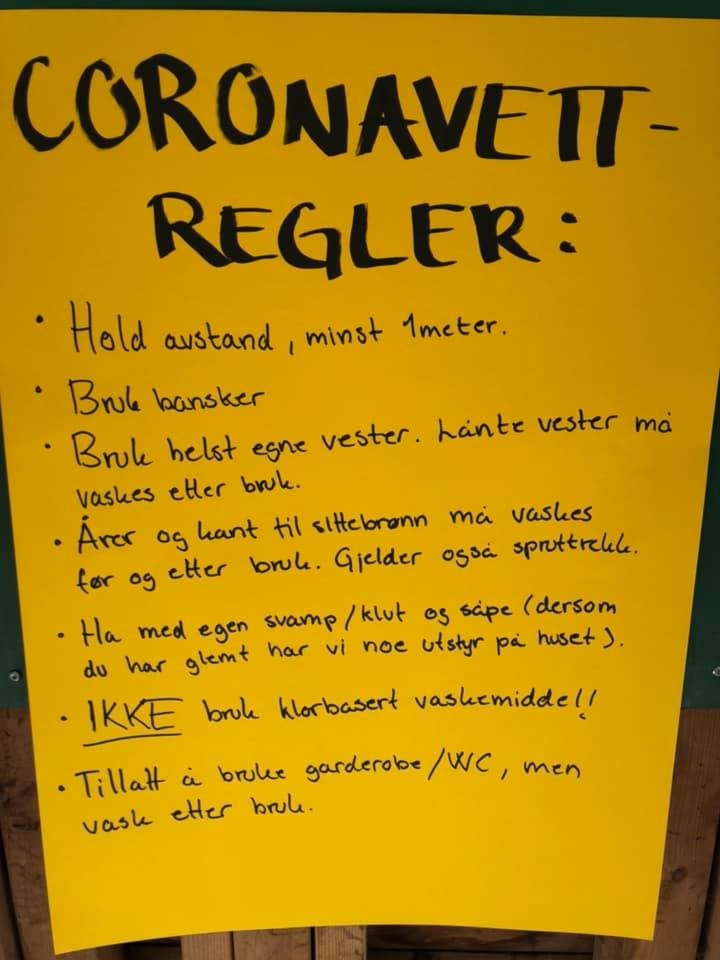 CORONAVETT-
REGLER:
• Hold avstand, minst 1meter.
• Bruk hansker
• Bruk helst egne vester. Lånte vester må
vaskes etter bruk.
• Årer og kant til sittebrønn må vaskes
før og etter bruk. Gjelder også spruttrekk.
• Ha med egen svamp/klut og såpe (dersom
du har glemt har vi noe utstyr på huset).
• IKKE bruk klorbasert vaskemiddel!
• Tillatt å bruke garderobe/WC, men
vask etter bruk.